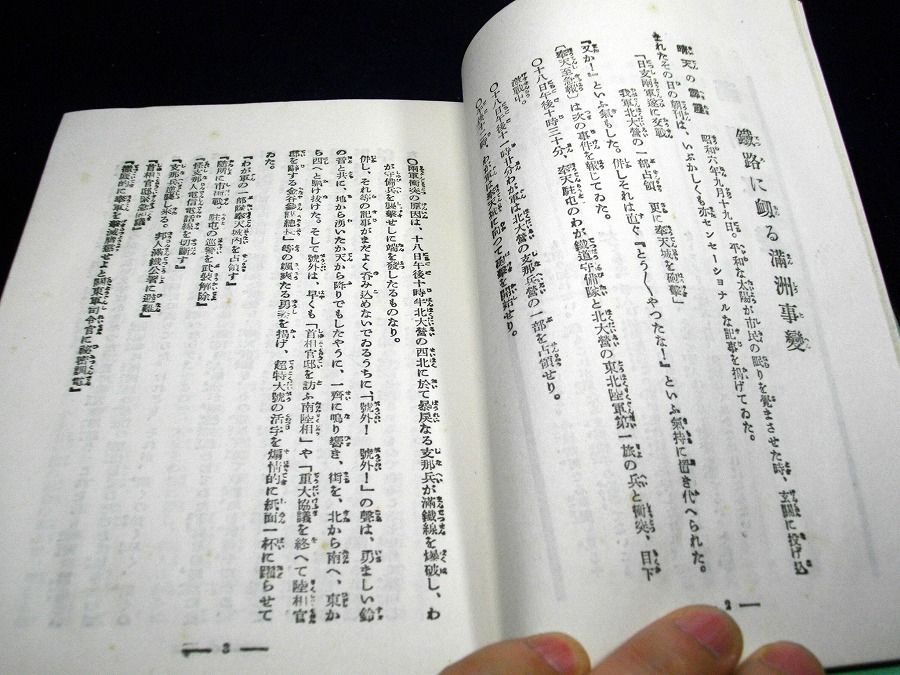 鐵路に刎る滿洲事變
晴天の霹靂
昭和六年九月十九日。平和な太陽が市民の眠りを覺まさせた時、玄關に投げ込
まれたその日の朝刊は、いぶかしくも亦センセーショナルな記事を揭げてゐた。
『日支兩軍遂に交戰
我軍北大營の一部占領、更に奉天城を砲擊』
『又か！』といふ氣もした。併しそれは直ぐ『とう〳〵やつたな！』といふ氣持に置き代へられた。
〔奉天至急報〕は次の事件を報じてゐた。
〇十八日午後十時三十分、奉天駐屯のわが鐵道守備隊と北大營の東北陸軍第一旅の兵と衝突、目下
激戰中。
〇十八日午後十一時廿分わが軍は北大營の支那兵營の一部を占領せり。
2
〇兩軍衝突の原因は、十八日午後十時半北大營の西北に於て暴戾なる支那兵が滿鐵線を爆破し、わ
が守備兵を襲擊せしに端を發したるものなり。
併し、それ等の記事がまだよく呑み込めないでゐるうちに、『號外！ 號外！』の聲は、勇ましい鈴
の音と共に、地から湧いたか天から降りでもしたやうに、一齊に鳴り響き、街を、北から南へ、東か
ら西へと駈け拔けた。そして號外は、早くも『首相官邸を訪ふ南陸相』や『重大協議を終へて陸相官
邸を辭する金谷參謀總長』等の颯爽たる勇姿を揭げ、超特大號の活字を煽情的に紙面一杯に躍らせて
ゐた。
『わが軍の一部隊奉天城內を占領す』
『隨所に市街戰、駐屯の巡警を武裝解除』
『怪支那人電信電話線を切斷す』
『支那兵逆襲し來る。邦人滿鐵公署に避難』
『首相官邸緊急會議』
『徹底的に奉軍を擊滅膺懲せよと關東軍司令官に秘密調電』
3